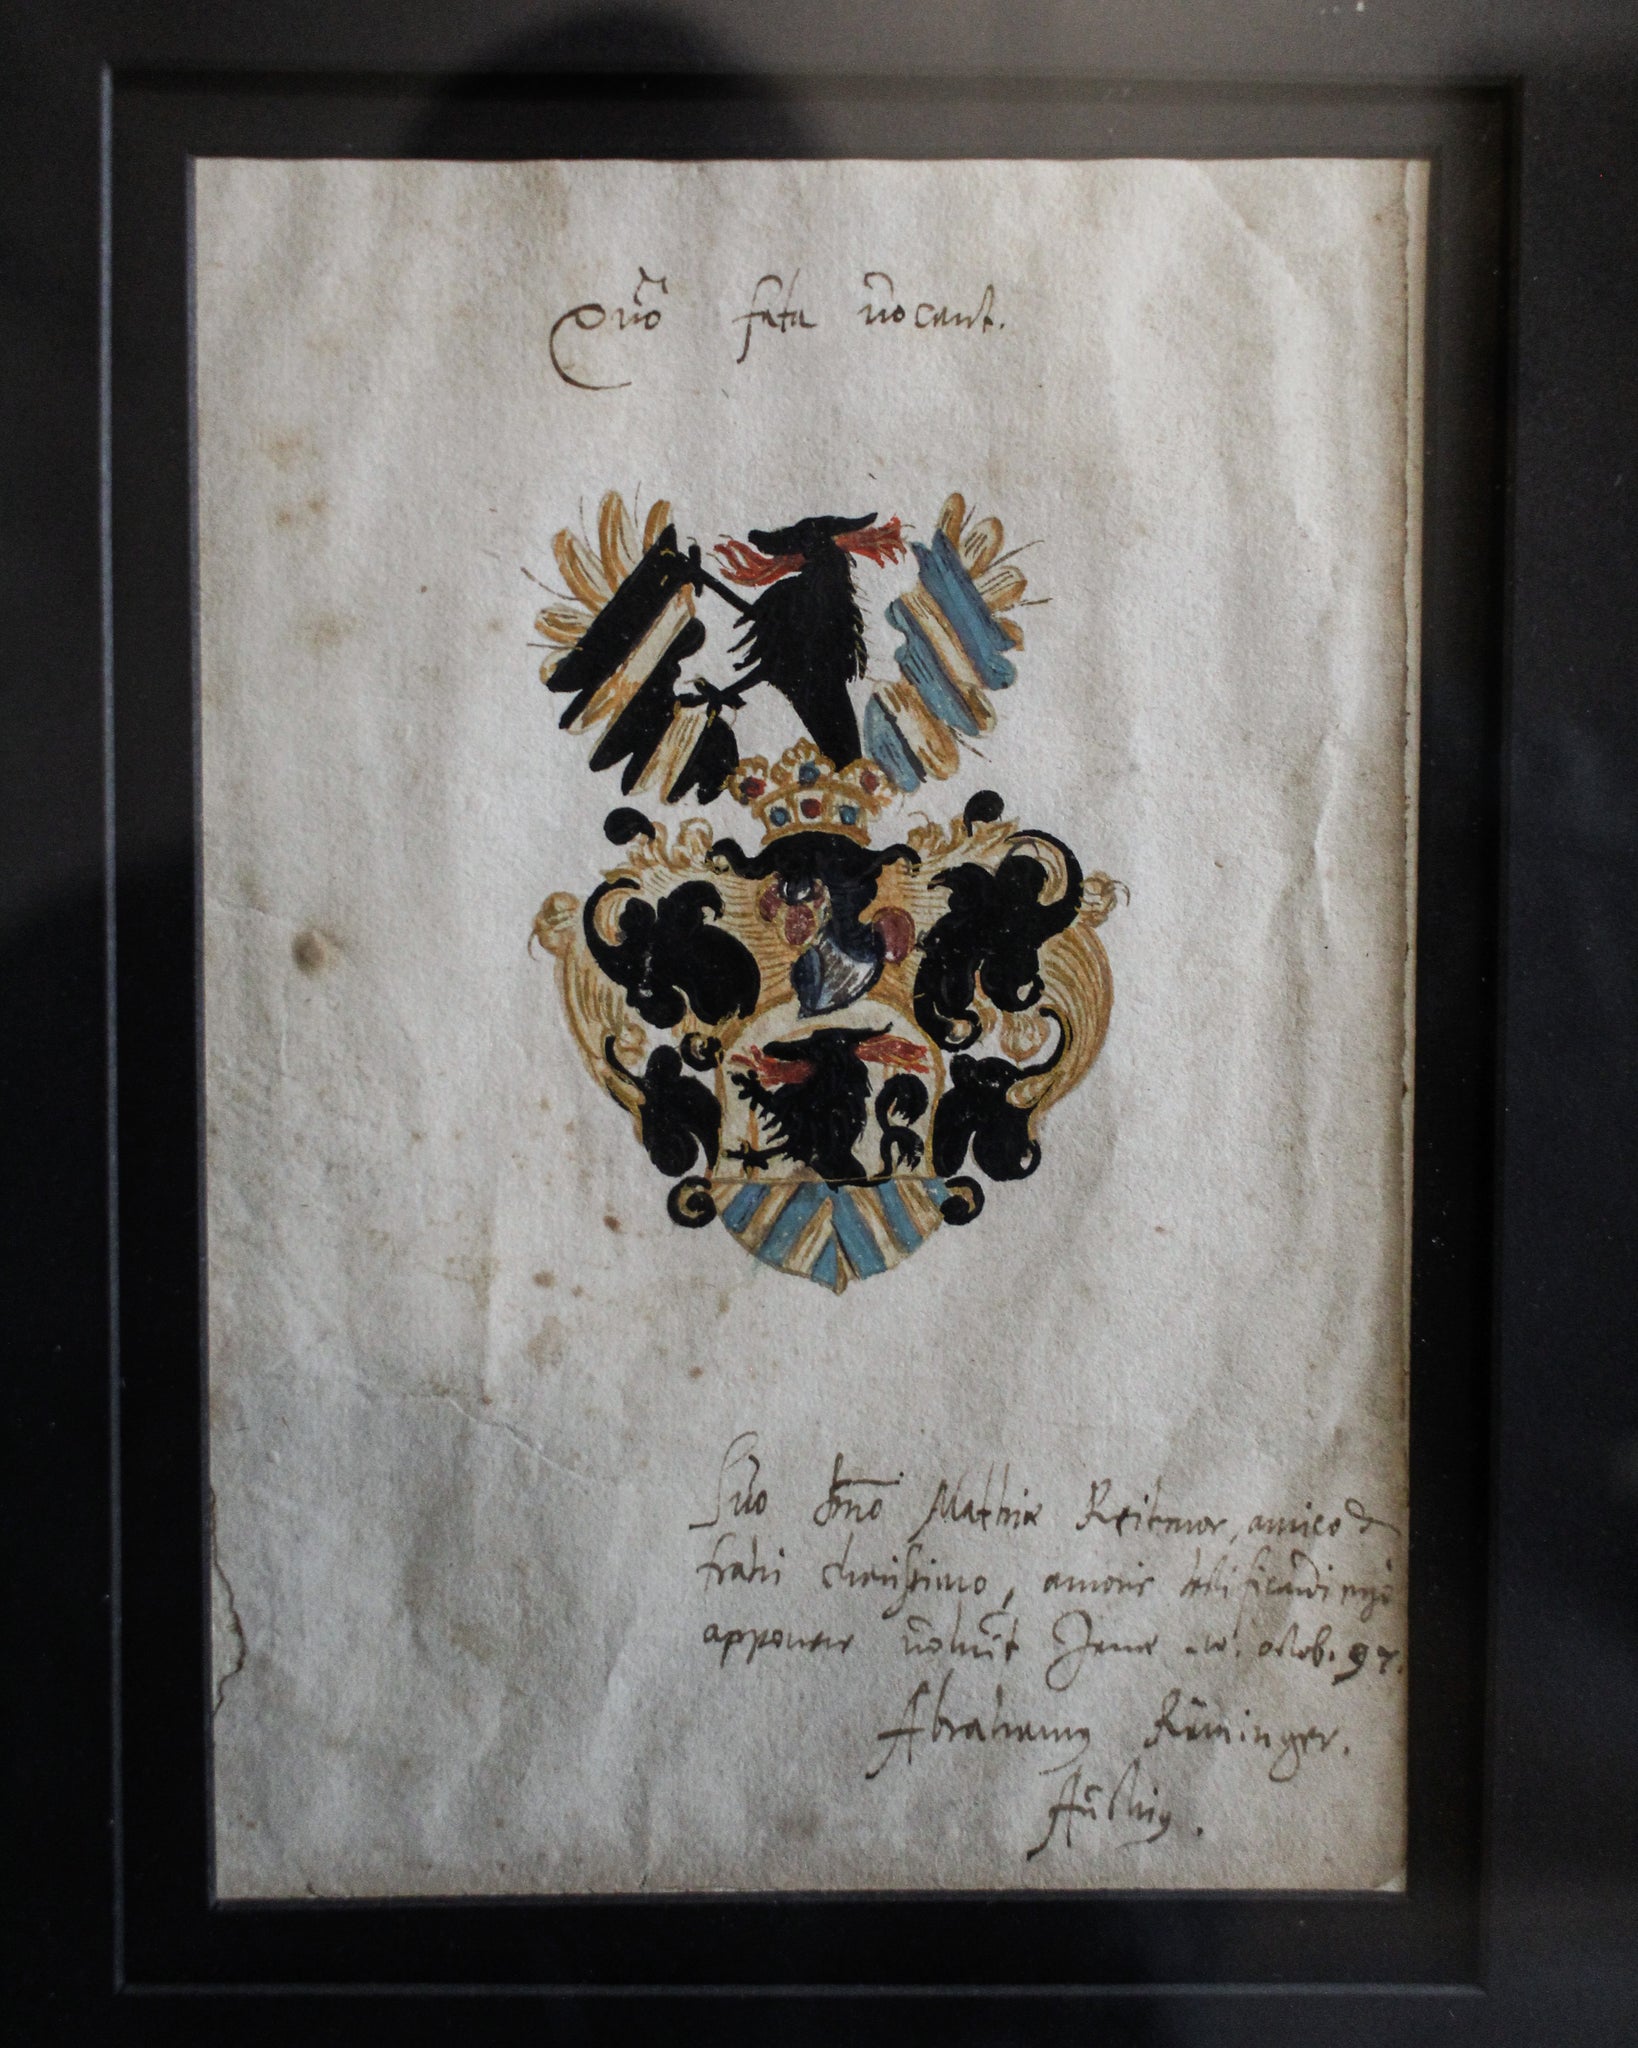 Quo fata vocant.
Suo dno Mathiæ Reitmor, amico &
fratri charissimo, amoris testificandi ergò
apponere voluit Jenæ octob. 97.
Abrahamus Räminger.